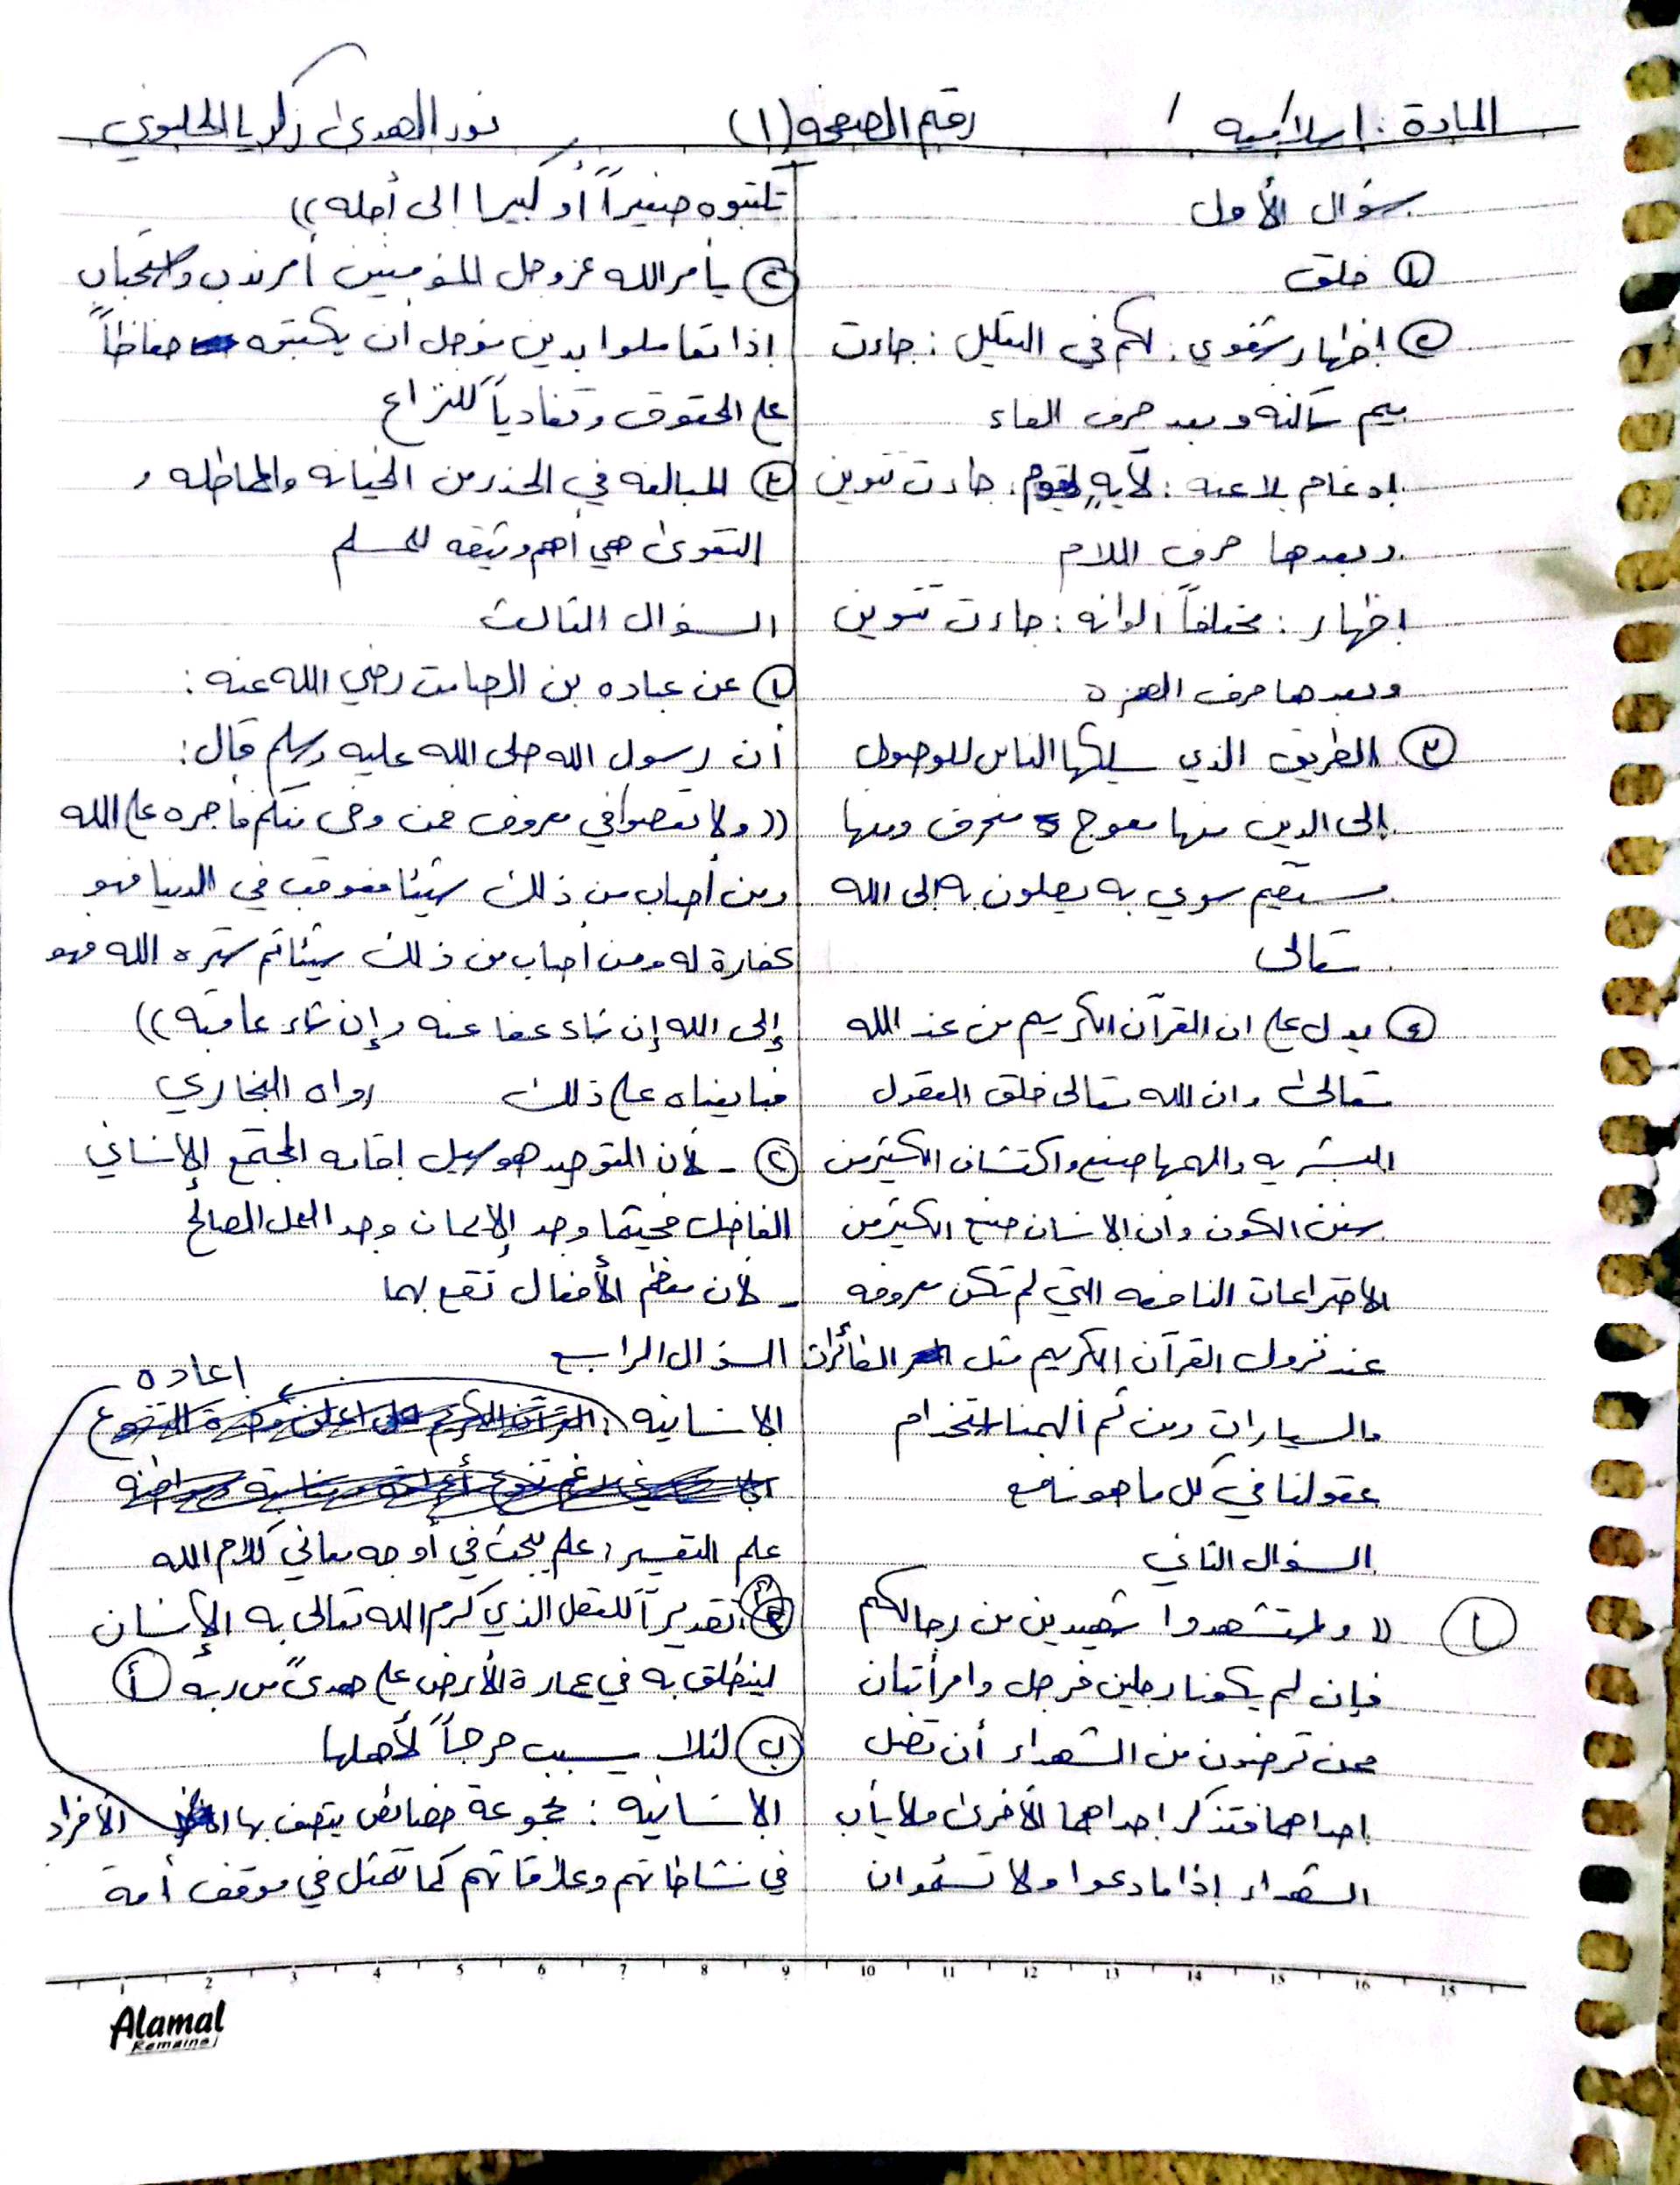 المادة : اسلاميه
رقم الصفحه (١)
نور الهدى زكريا الحلبوني
سؤال الأول
① خلق
② إظهار شفوي : لكم في التعليل : جاءت
ميم ساكنه وبعد حرف الفاء
إدغام بلا غنه : لآيةٍ لقوم . جاءت تنوين
وبعدها حرف اللام
إظهار : مختلفاً ألوانه : جاءت تنوين
وبعدها حرف الهمزة
③ الطريق الذي يسلكها الناس للوصول
إلى الدين منها معوج منحرف ومنها
مستقيم سوي به يصلون به إلى الله
تعالى
④ يدل على ان القرآن الكريم من عند الله
تعالى وان الله تعالى خلق العقول
البشريه والهمها صنع واكتشاف الكثير من
سنن الكون وان الانسان صنع الكثير من
الاختراعات النافعه التي لم تكن معروفه
عند نزول القرآن الكريم مثل الطائرات
والسيارات ومن ثم ألهمنا استخدام
عقولنا في كل ما هو نافع
السؤال الثاني
① (( واستشهدوا شهيدين من رجالكم
فإن لم يكونا رجلين فرجل وامرأتان
ممن ترضون من الشهداء أن تضل
إحداهما فتذكر إحداهما الأخرى ولا يأب
الشهداء إذا ما دعوا ولا تسئموا ان
تكتبوه صغيراً أو كبيرا إلى أجله ))
② يأمر الله عز وجل المؤمنين أمر ندب واستحباب
إذا تعاملوا بدين مؤجل أن يكتبوه حفاظاً
على الحقوق وتفادياً للنزاع
④ المبالغه في الحذر من الخيانه والمماطله و
التقوى هي أهم وثيقه للمسلم
السؤال الثالث
① عن عباده بن الصامت رضي الله عنه :
أن رسول الله صلى الله عليه وسلم قال :
(( ولا تعصوا في معروف فمن وفى منكم فأجره على الله
ومن أصاب من ذلك شيئا فعوقب في الدنيا فهو
كفارة له ومن أصاب من ذلك شيئا ثم ستره الله فهو
إلى الله إن شاء عفا عنه وإن شاء عاقبه ))
فبايعناه على ذلك رواه البخاري
② - لأن التوحيد هو سبيل إقامه المجتمع الإنساني
الفاضل فحيثما وجد الإيمان وجد العمل الصالح
- لأن معظم الأفعال تقع بهما
السؤال الرابع
اعاده
الانسانيه :
علم التفسير : علم يبحث في أوجه معاني كلام الله
تقديراً للعقل الذي كرم الله تعالى به الإنسان
لينطلق به في عمارة الأرض على هدىً من ربه أ
ب لئلا يسبب حرجاً لأهلها
الانسانيه : مجموعة خصائص يتصف بها الأفراد
في نشاطاتهم وعلاقاتهم كما تتمثل في موقف أمة
1 2 3 4 5 6 7 8 9 10 11 12 13 14 15 16 15
Alamal
Remainal